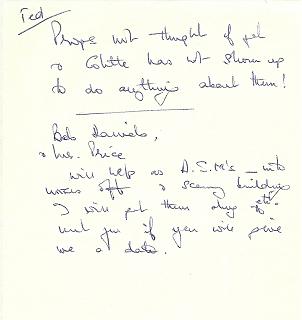 Ted
Props not thought of yet
& Colette has not shown up
to do anything about them!
Bob Daniels,
& Mrs. Price
will help as A.S.M's _ into
& scenery building
I will get them along etc.
 you if you will give
me a date.